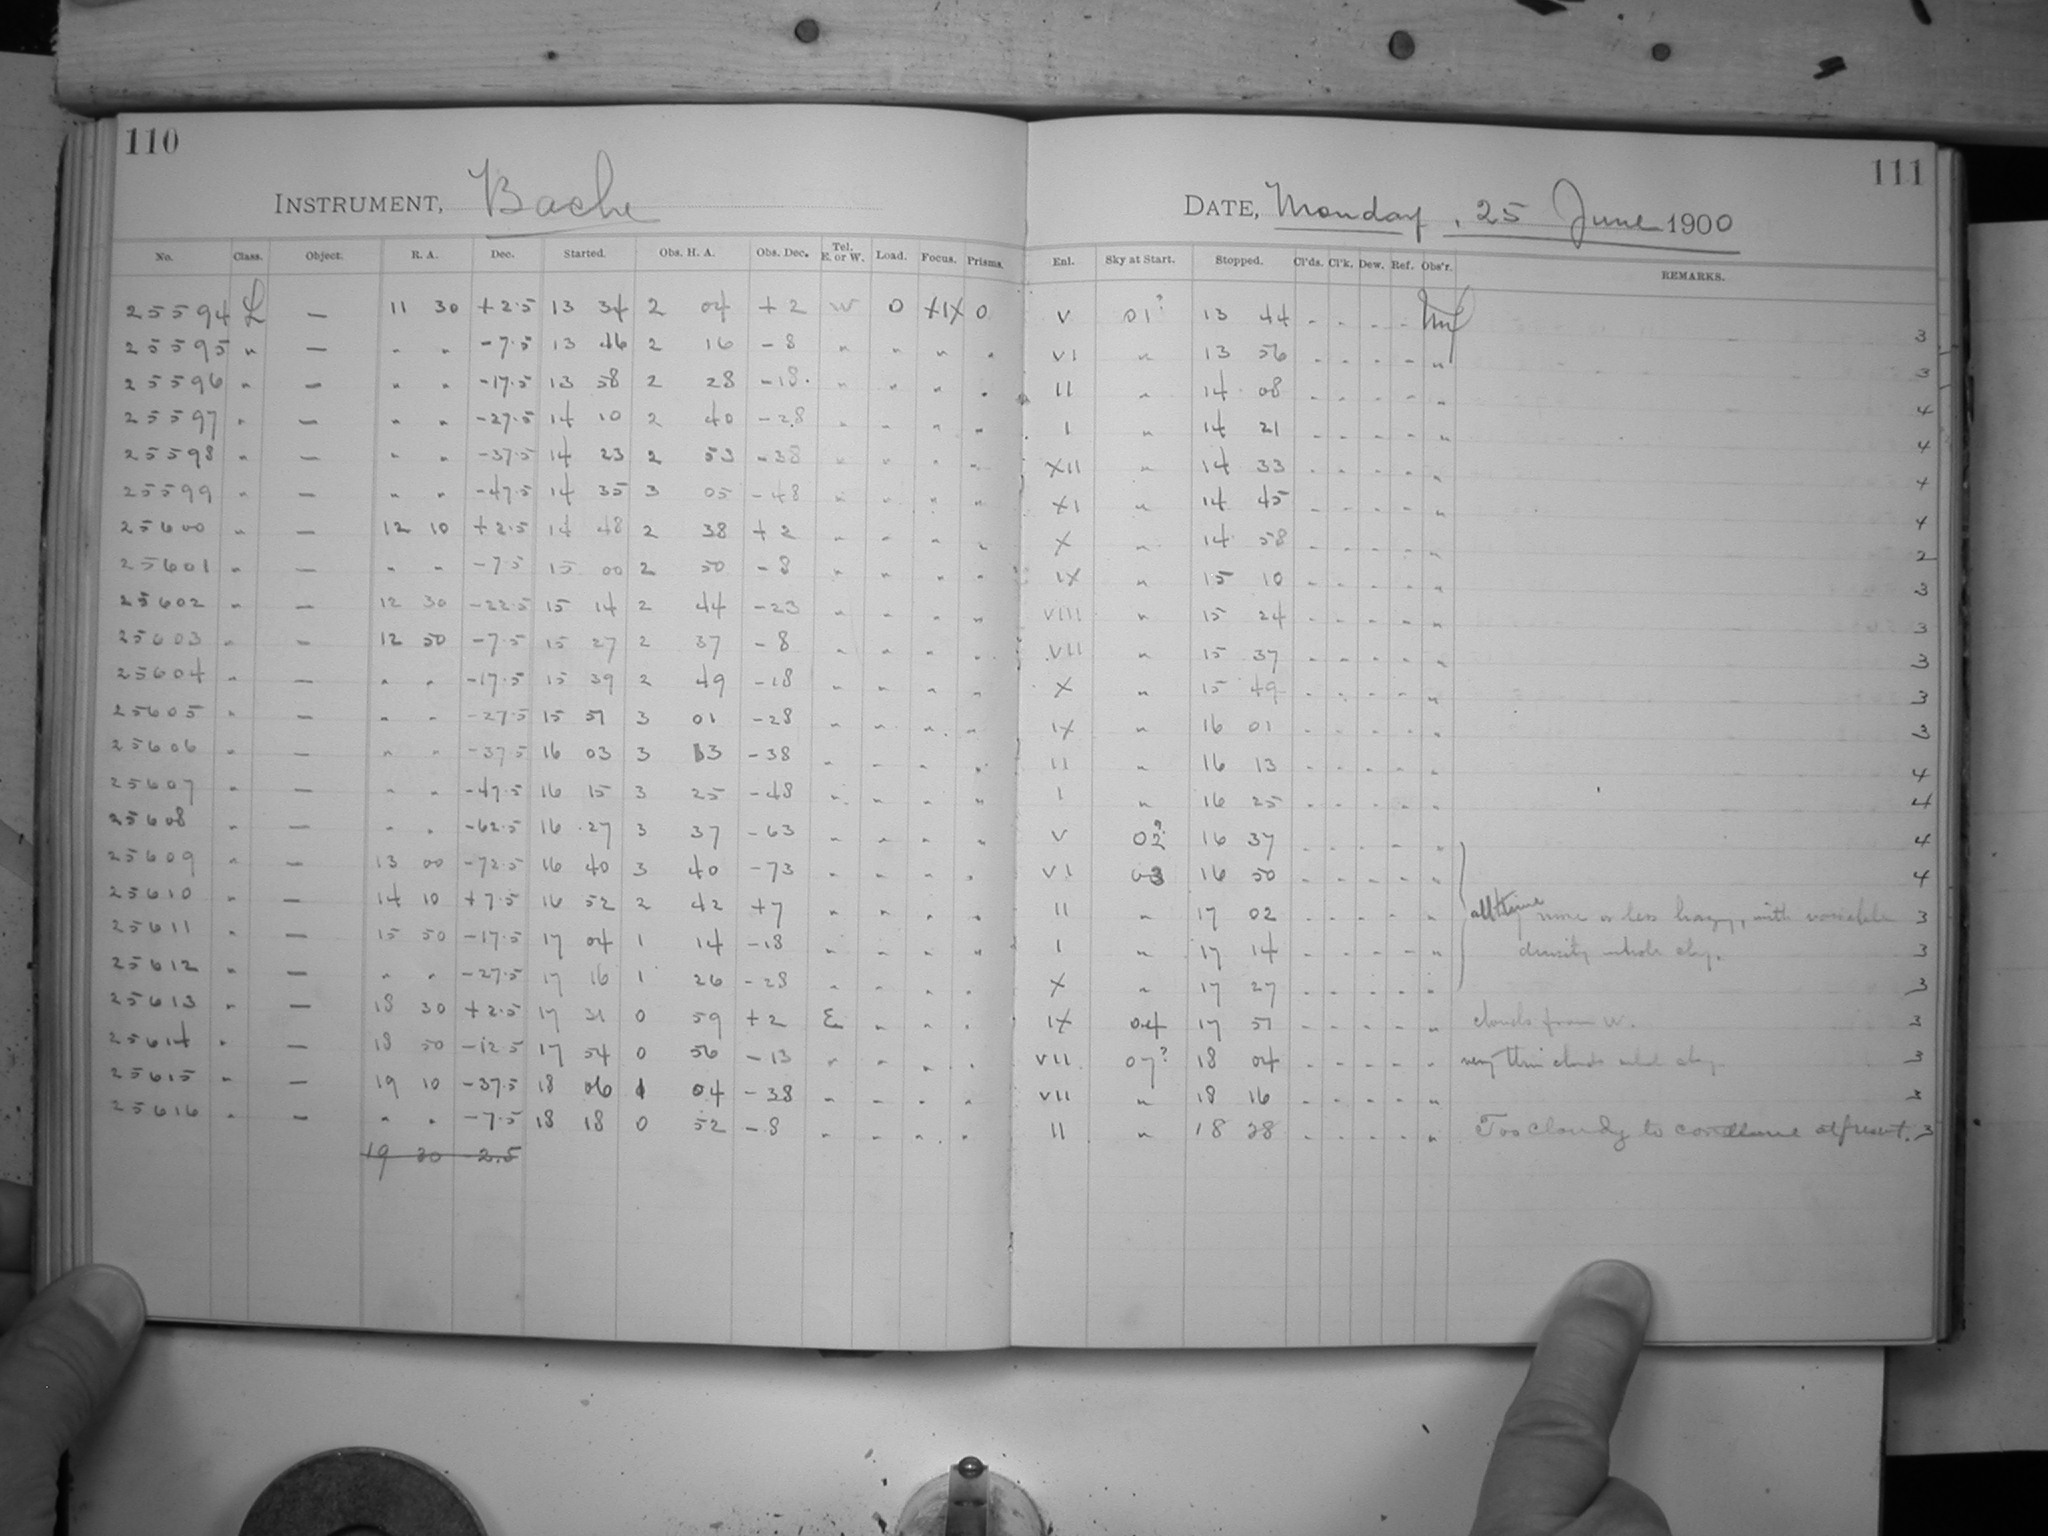 110
111
INSTRUMENT, Bache
DATE, Monday, 25 June 1900
No. Class. Object. R. A. Dec. Started. Obs. H. A. Obs. Dec. Tel. E. or W. Load. Focus. Prisms. Enl. Sky at Start. Stopped. Cl'ds. Cl'k. Dew. Ref. Obs'r. REMARKS.
25594 L — 11 30 +2.5 13 34 2 04 +2 W 0 XIX 0 V 01? 13 44 - - - - 3
25595 " — " " -7.5 13 46 2 16 -8 " " " " VI " 13 56 - - - - " 3
25596 " — " " -17.5 13 58 2 28 -18. " " " " II " 14 08 - - - - " 4
25597 " — " " -27.5 14 10 2 40 -28 " " " " I " 14 21 - - - - " 4
25598 " — " " -37.5 14 23 2 53 -38 " " " " XII " 14 33 - - - - " 4
25599 " — " " -47.5 14 35 3 05 -48 " " " " XI " 14 45 - - - - " 4
25600 " — 12 10 +2.5 14 48 2 38 +2 " " " " X " 14 58 - - - - " 2
25601 " — " " -7.5 15 00 2 50 -8 " " " " IX " 15 10 - - - - " 3
25602 " — 12 30 -22.5 15 14 2 44 -23 " " " " VIII " 15 24 - - - - " 3
25603 " — 12 50 -7.5 15 27 2 37 -8 " " " " VII " 15 37 - - - - " 3
25604 " — " " -17.5 15 39 2 49 -18 " " " " X " 15 49 - - - - " 3
25605 " — " " -27.5 15 51 3 01 -28 " " " " IX " 16 01 - - - - " 3
25606 " — " " -37.5 16 03 3 13 -38 " " " " II " 16 13 - - - - " 4
25607 " — " " -47.5 16 15 3 25 -48 " " " " I " 16 25 - - - - " 4
25608 " — " " -62.5 16 27 3 37 -63 " " " " V 02? 16 37 - - - - " 4
25609 " — 13 00 -72.5 16 40 3 40 -73 " " " " VI 03 16 50 - - - - " 4
25610 " — 14 10 +7.5 16 52 2 42 +7 " " " " II " 17 02 - - - - " all time more or less hazy, with variable 3
25611 " — 15 50 -17.5 17 04 1 14 -18 " " " " I " 17 14 - - - - " density whole sky. 3
25612 " — " " -27.5 17 16 1 26 -28 " " " " X " 17 27 - - - - " 3
25613 " — 18 30 +2.5 17 31 0 59 +2 E " " " IX 04 17 51 - - - - " clouds from W. 3
25614 " — 18 50 -12.5 17 54 0 56 -13 " " " " VII 07? 18 04 - - - - " very thin clouds sky. 3
25615 " — 19 10 -37.5 18 06 1 04 -38 " " " " VII " 18 16 - - - - " 3
25616 " — " " -7.5 18 18 0 52 -8 " " " " II " 18 28 - - - - " Too cloudy to continue at present. 3
19 30 -2.5